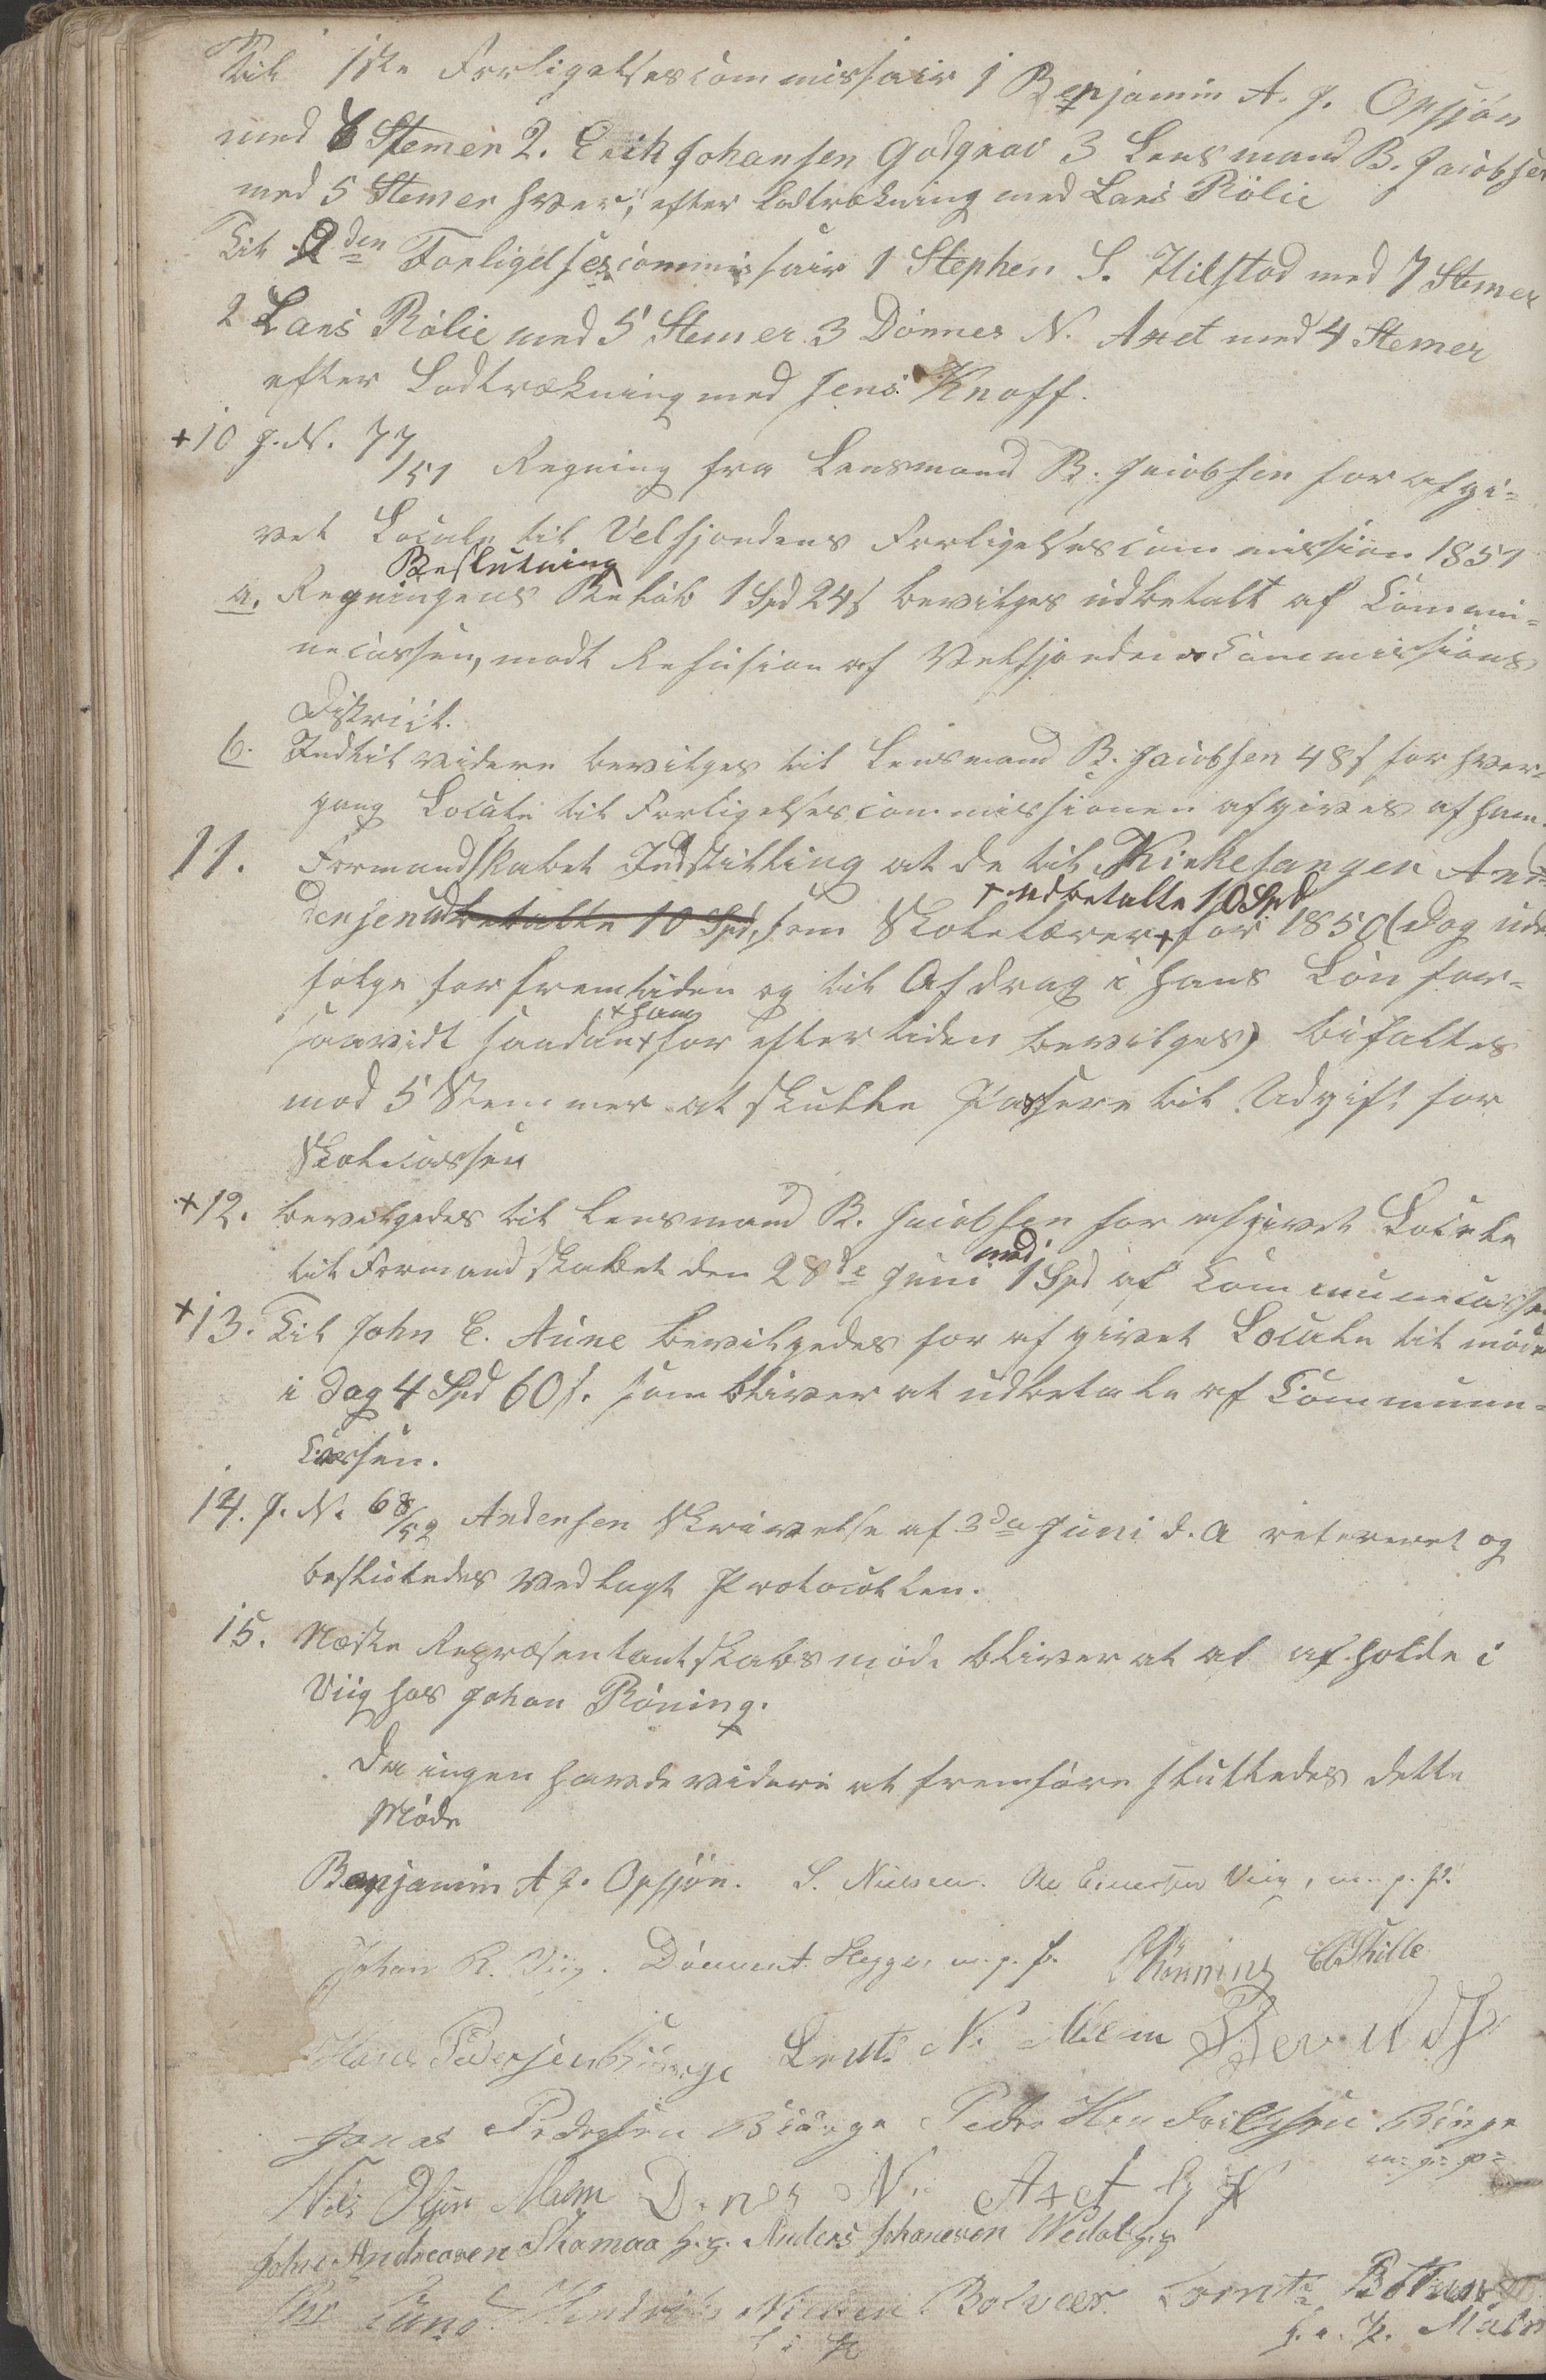 Til 1ste Forligelsescommissair 1 Benjamin A. J. Opsjøn
med 6 Stemer 2. Erik Johansen Godgrav 3 Lensmand B. Jacobsen
med 5 Stemer hver, efter Lodtrækning med Lars Rölie
Til 2den Forligelsescommissair 1 Stephen S. Hilstad med 7 Stemer
2 Lars Rölie med 5 Stemer 3 Dönnes N. Axet med 4 Stemer
efter Lodtrækning med Jens Knoff.
+10 J.N. 77/151 Regning fra Lensmand B. Jacobsen for afgi=
vet Locale til Velfjordens Forligelsescommission 1851
Beslutning
a. Regningens Beløb 1 Spd 24 s bevilges udbetalt af Commu=
necassen, modt Refusion af Velfjordens Commissions
District.
b. Indtil videre bevilges til Lensmand B. Jacobsen 48 s for hver=
gang Locale til Forligelsescommissionen afgives af ham.
11. Formandskabet Indstilling at de til Kirkesanger An=
+ udbetalte 10 Spd
densen udbetalte 10 Spd, som Skolelærer + for 1850 (dog uden
følge for fremtiden og til Afdrag i hans Løn for=
+ ham
saavidt saadan + for eftertiden bevilges) bifaltes
mod 5 Stemmer at skulle Passere til Udgift for
Skolecassen
+12. bevilgedes til Lensmand B. Jacobsen for afgivet Locale
til Formandskabet den 28de Juni 1 Spd af Communecassen
+13. Til John E. Aune bevilgedes for afgivet Locale til møde
i dag 4 Spd 60 s. som bliver at udbetale af Commune=
Cassen.
14. J. N. 68/52 Andensen Skrivelse af 3de Juni d. A refereret og
besluttedes vedlagt Protocollen.
15. Næste Repræsentantskabsmøde bliver at af afholde i
Viig hos Johan Röning.
Da ingen havde videre at fremføre sluttedes dette
Møde
Benjamin A J. Opsjøn. S. Nielsen. Viig, m. p. P.
Johan R. Viig. Hegge, m. p. P. Rönning
Hans Pedersen Lents N.
Jonas Pedersen Biörge Peder Hendrichsen Binge
m: p: p=
Nils Olsen N. Axet
John Andreasen Skomaa Anders Johanesen Wedal
Hendrik Nielsen